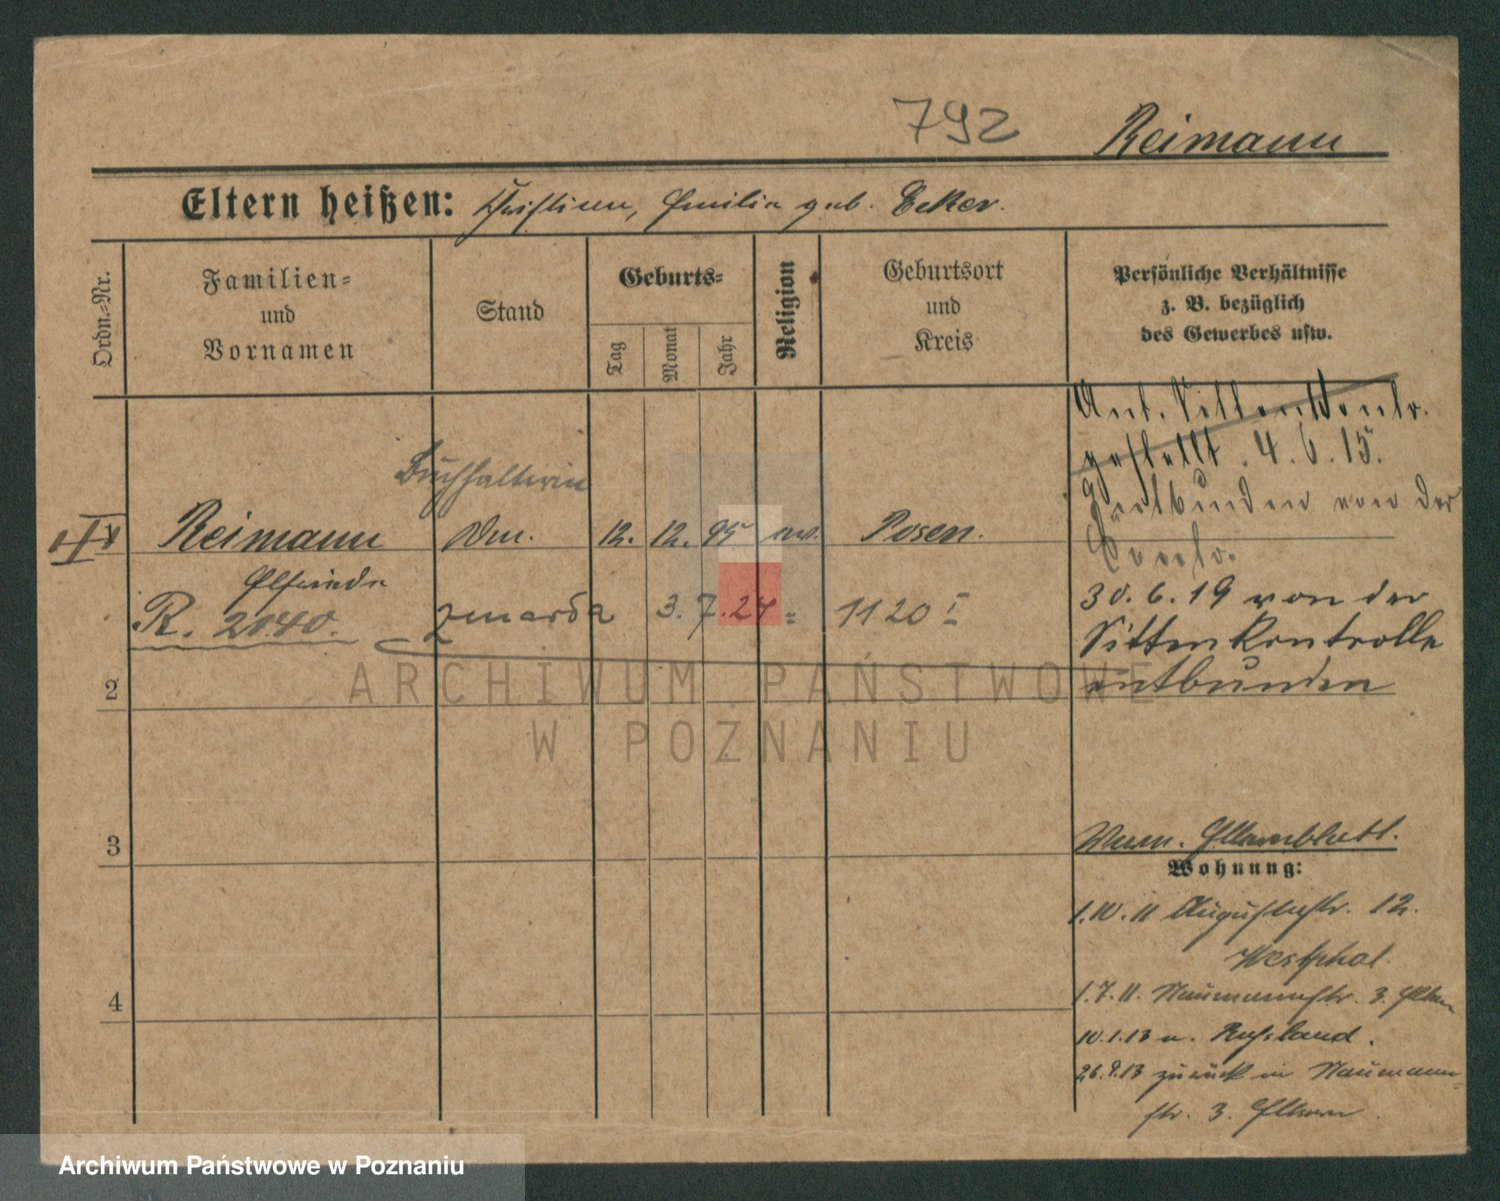 792 Reimann
Eltern heißen: Christian, Emilie geb. Ecker.
Ordn.-Nr.
Familien-
und
Vornamen
Stand
Geburts-
Tag
Monat
Jahr
Religion
Geburtsort
und
Kreis
Persönliche Verhältnisse
z. B. bezüglich
des Gewerbes usw.
Unt. Sittenkontr.
gestellt. 4.6.15.
Entbunden von der
Contr.
30.6.19 von der
Sittenkontrolle
entbunden
Buchhalterin
Reimann 12. 12. 95 ev. Posen.
Elfriede
R. 2140. zmarła 3.7.24 = 1120 I
2
3
4
Elternblatt.
Wohnung:
1.10.11 Augustastr. 12.
Westphal.
1.7.11. Naumannstr. 3. Eltern
10.1.13 n. Russland.
26.9.13 zurück in Naumann-
str. 3. Eltern.
ARCHIWUM PAŃSTWOWE
W POZNANIU
Archiwum Państwowe w Poznaniu